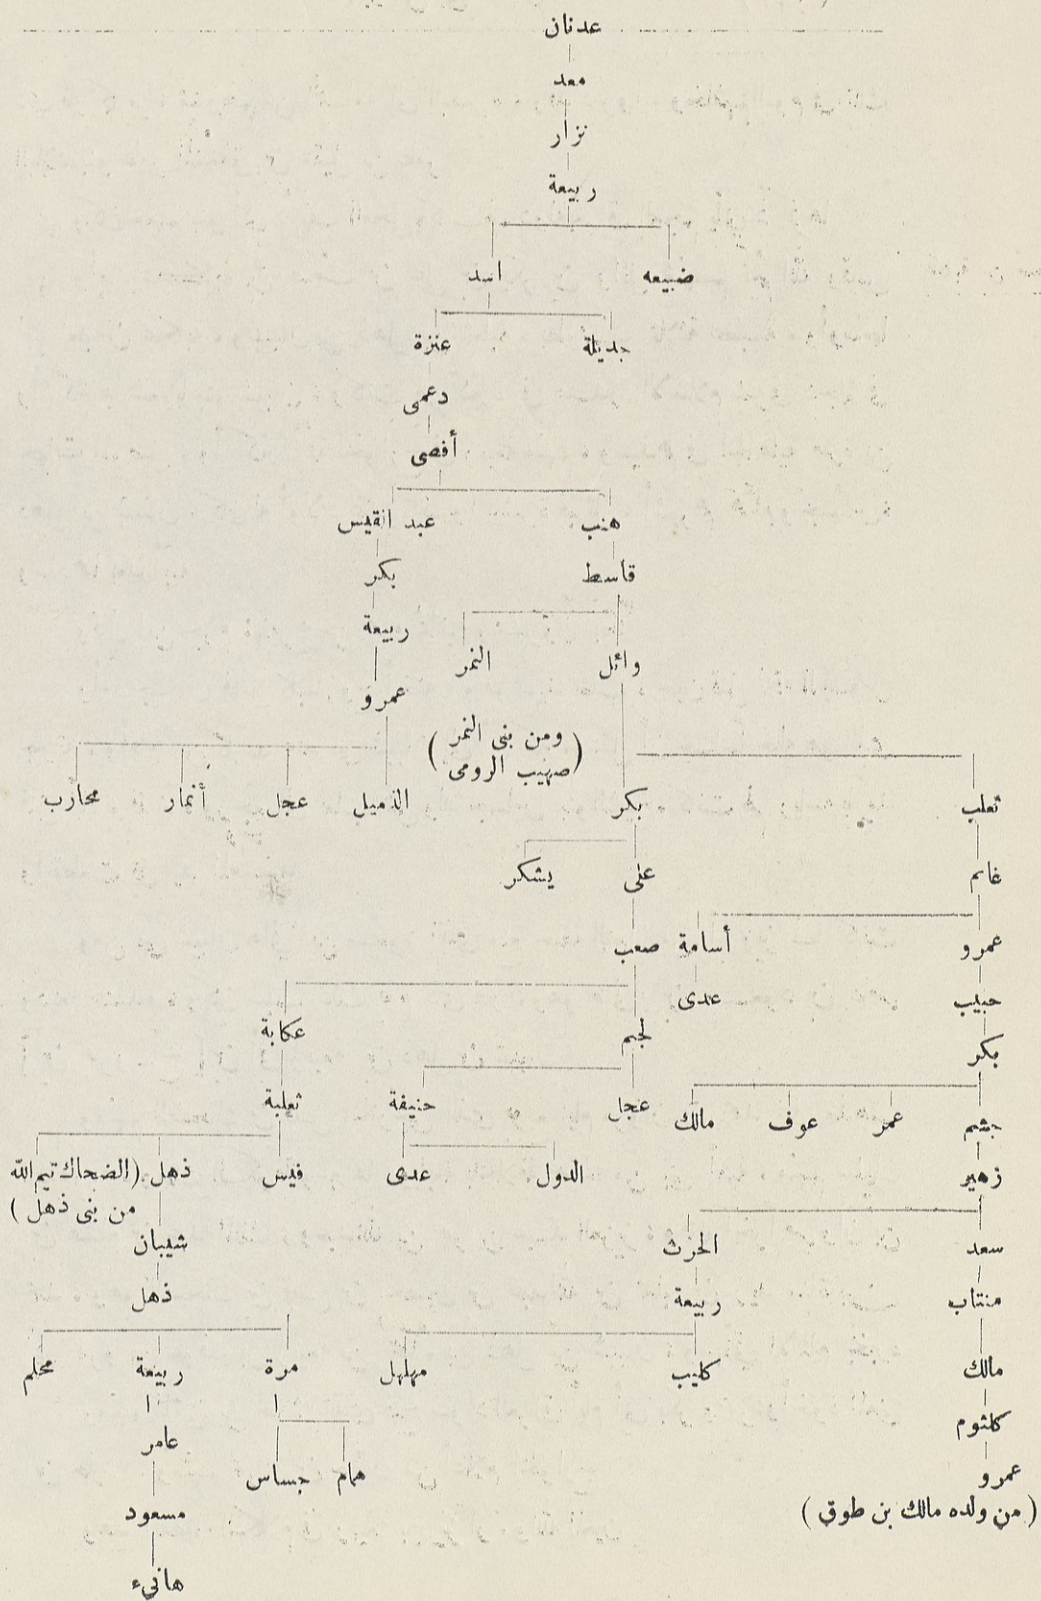 عدنان
معد
نزار
ربيعة
ضبيعه اسد
جديلة عنزة
دعمى
أفصى
هنب عبد القيس
قاسط بكر
ربيعة
وائل النمر
عمرو
(ومن بنى النمر
صهيب الرومى)
تعلب بكر الذميل عجل أنمار محارب
غانم على يشكر
عمرو أسامة صعب
حبيب عدى
لجيم عكابة
بكر
عجل حنيفة ثعلبة
جشم عمر عوف مالك
زهير الدول عدى قيس ذهل (الضحاك تيم الله
من بنى ذهل)
سعد الحرث شيبان
منتاب ربيعة ذهل
مالك كليب مهلهل مرة ربيعة محلم
كلثوم عامر
عمرو همام جساس
(من ولده مالك بن طوق) مسعود
هانىء